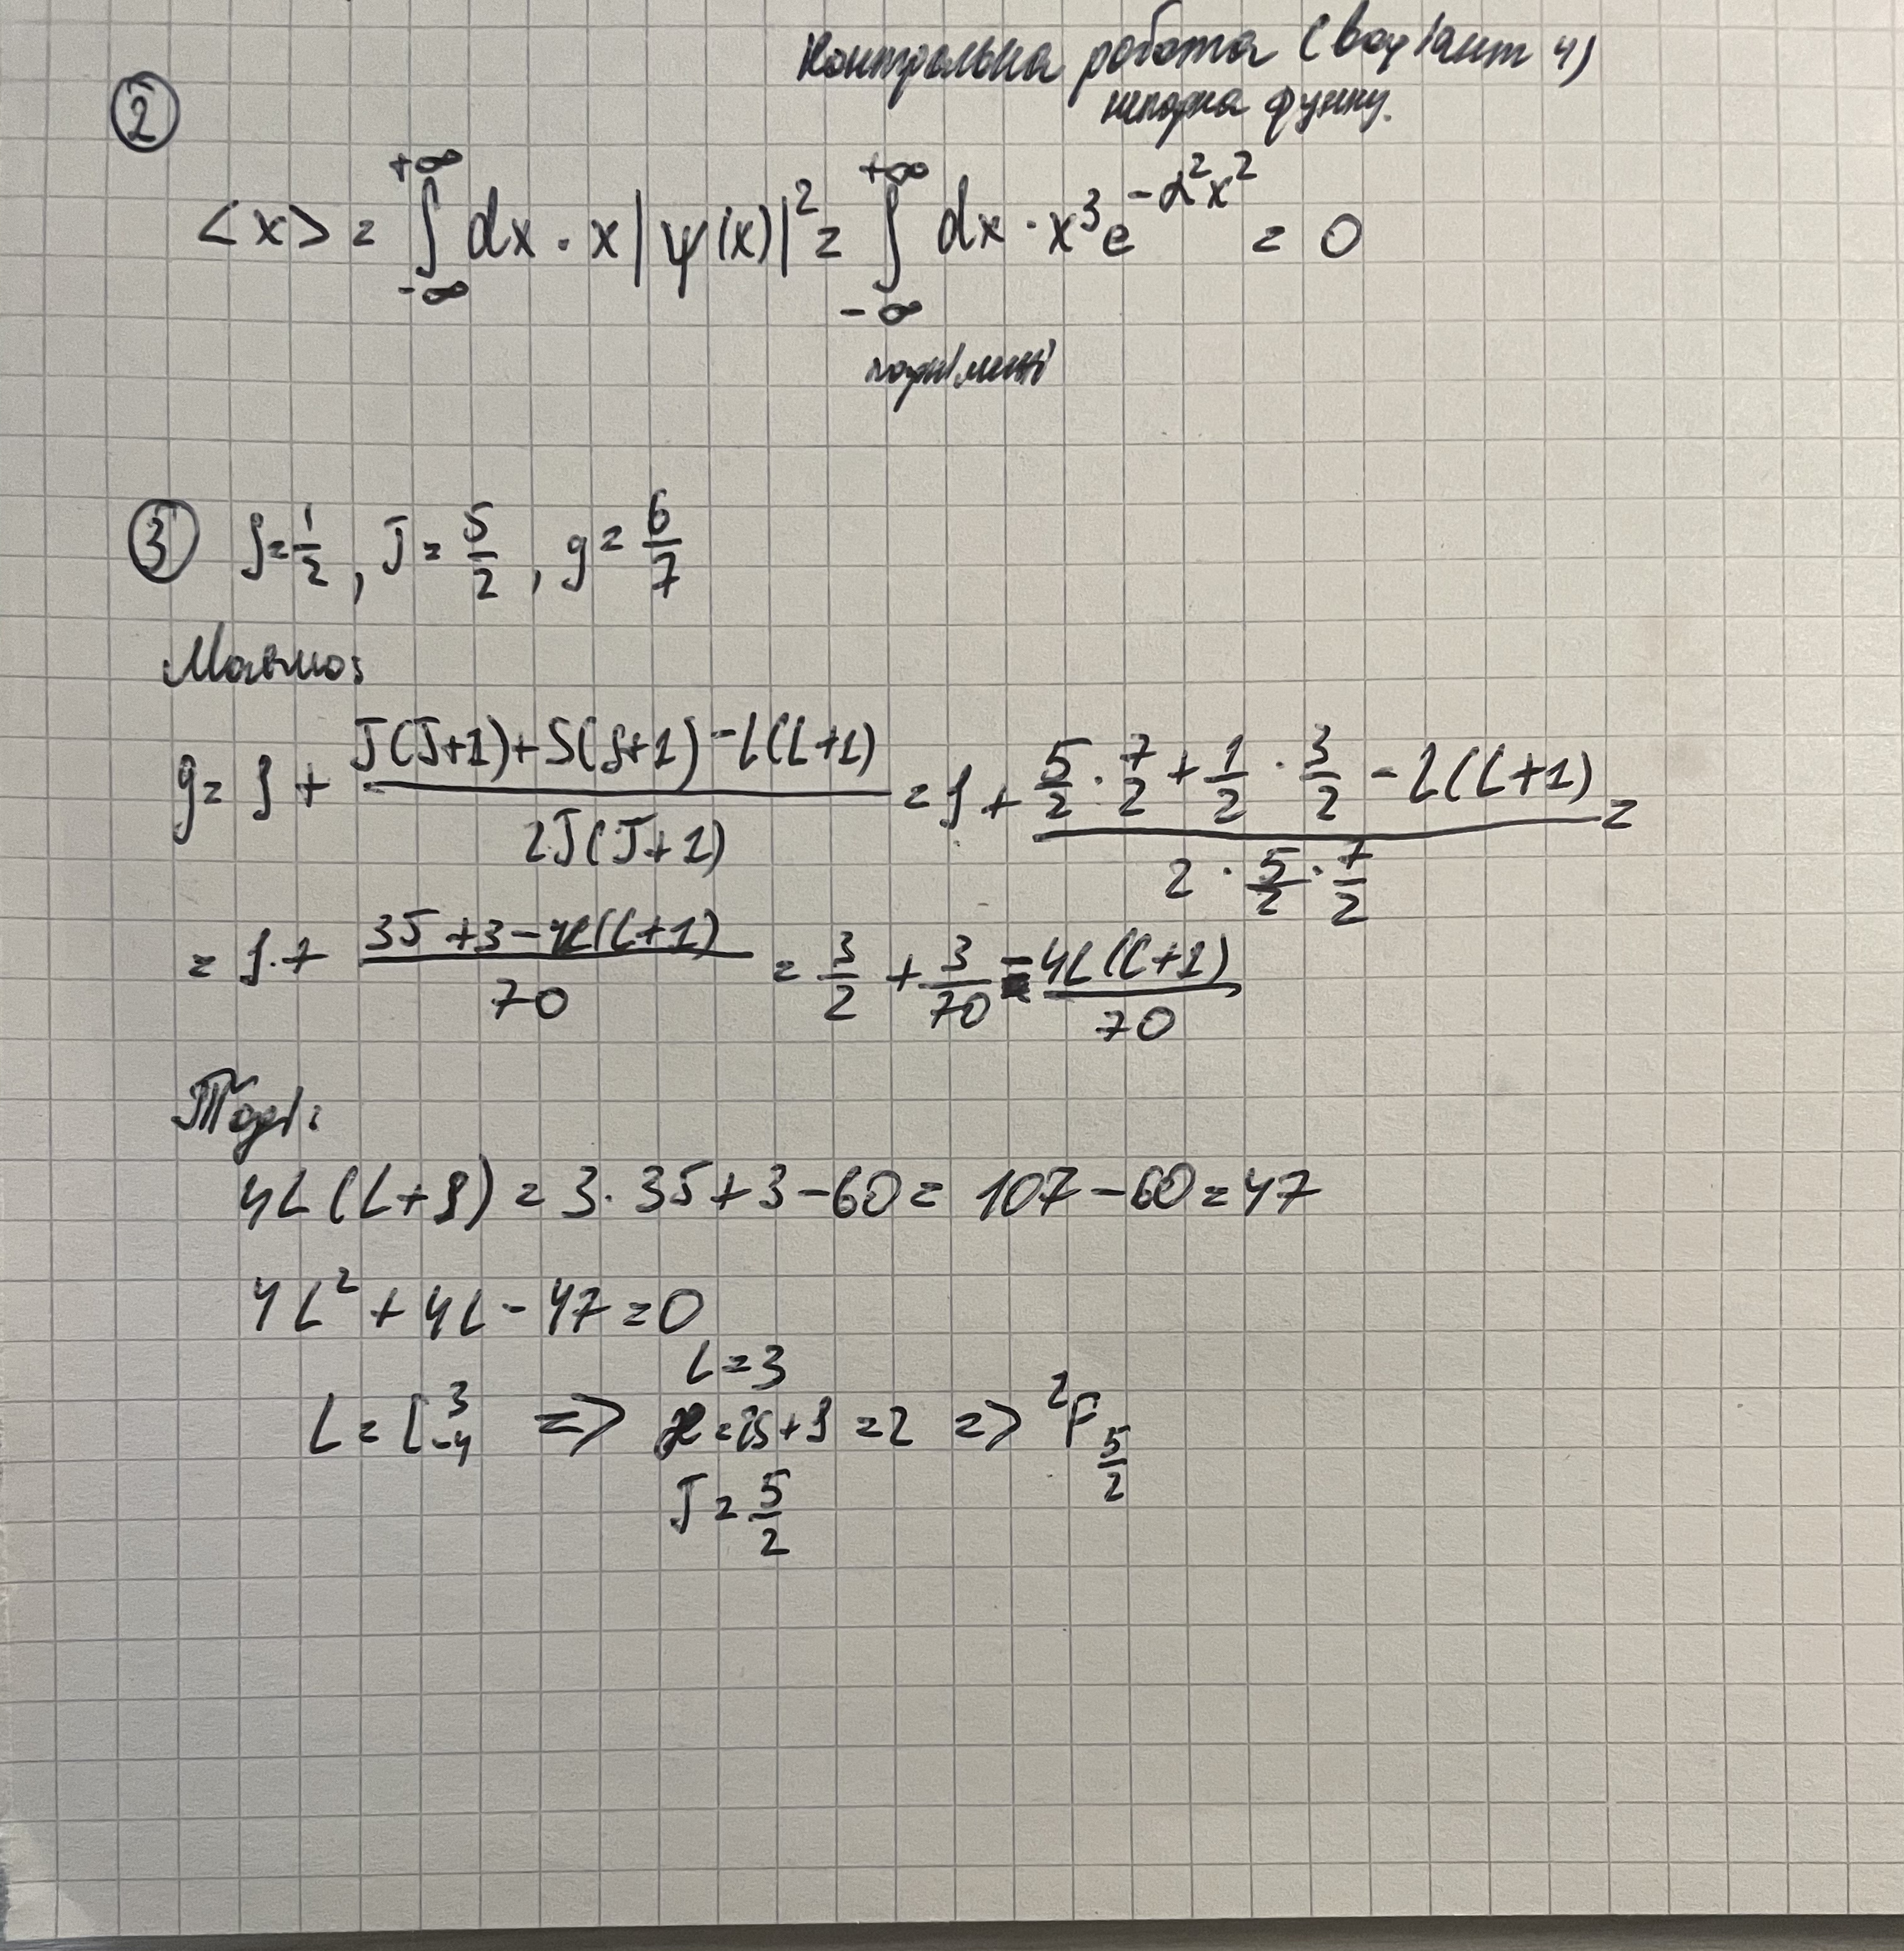 Контрольна робота (Варіант 4)
непарна функц.
2
<x> = ∫_{-∞}^{+∞} dx · x |ψ(x)|² = ∫_{-∞}^{+∞} dx · x³ e^{-α²x²} = 0
3 S = 1/2, J = 5/2, g = 6/7
Маємо:
g = 1 + (J(J+1) + S(S+1) - L(L+1)) / (2J(J+1)) = 1 + (5/2 · 7/2 + 1/2 · 3/2 - L(L+1)) / (2 · 5/2 · 7/2) =
= 1 + (35 + 3 - 4L(L+1)) / 70 = 3/2 + 3/70 - 4L(L+1)/70
Тоді:
4L(L+1) = 3 · 35 + 3 - 60 = 107 - 60 = 47
4L² + 4L - 47 = 0
L = 3
L = [ 3 -4 => æ = 2S + 1 = 2 => ²F_{5/2}
J = 5/2